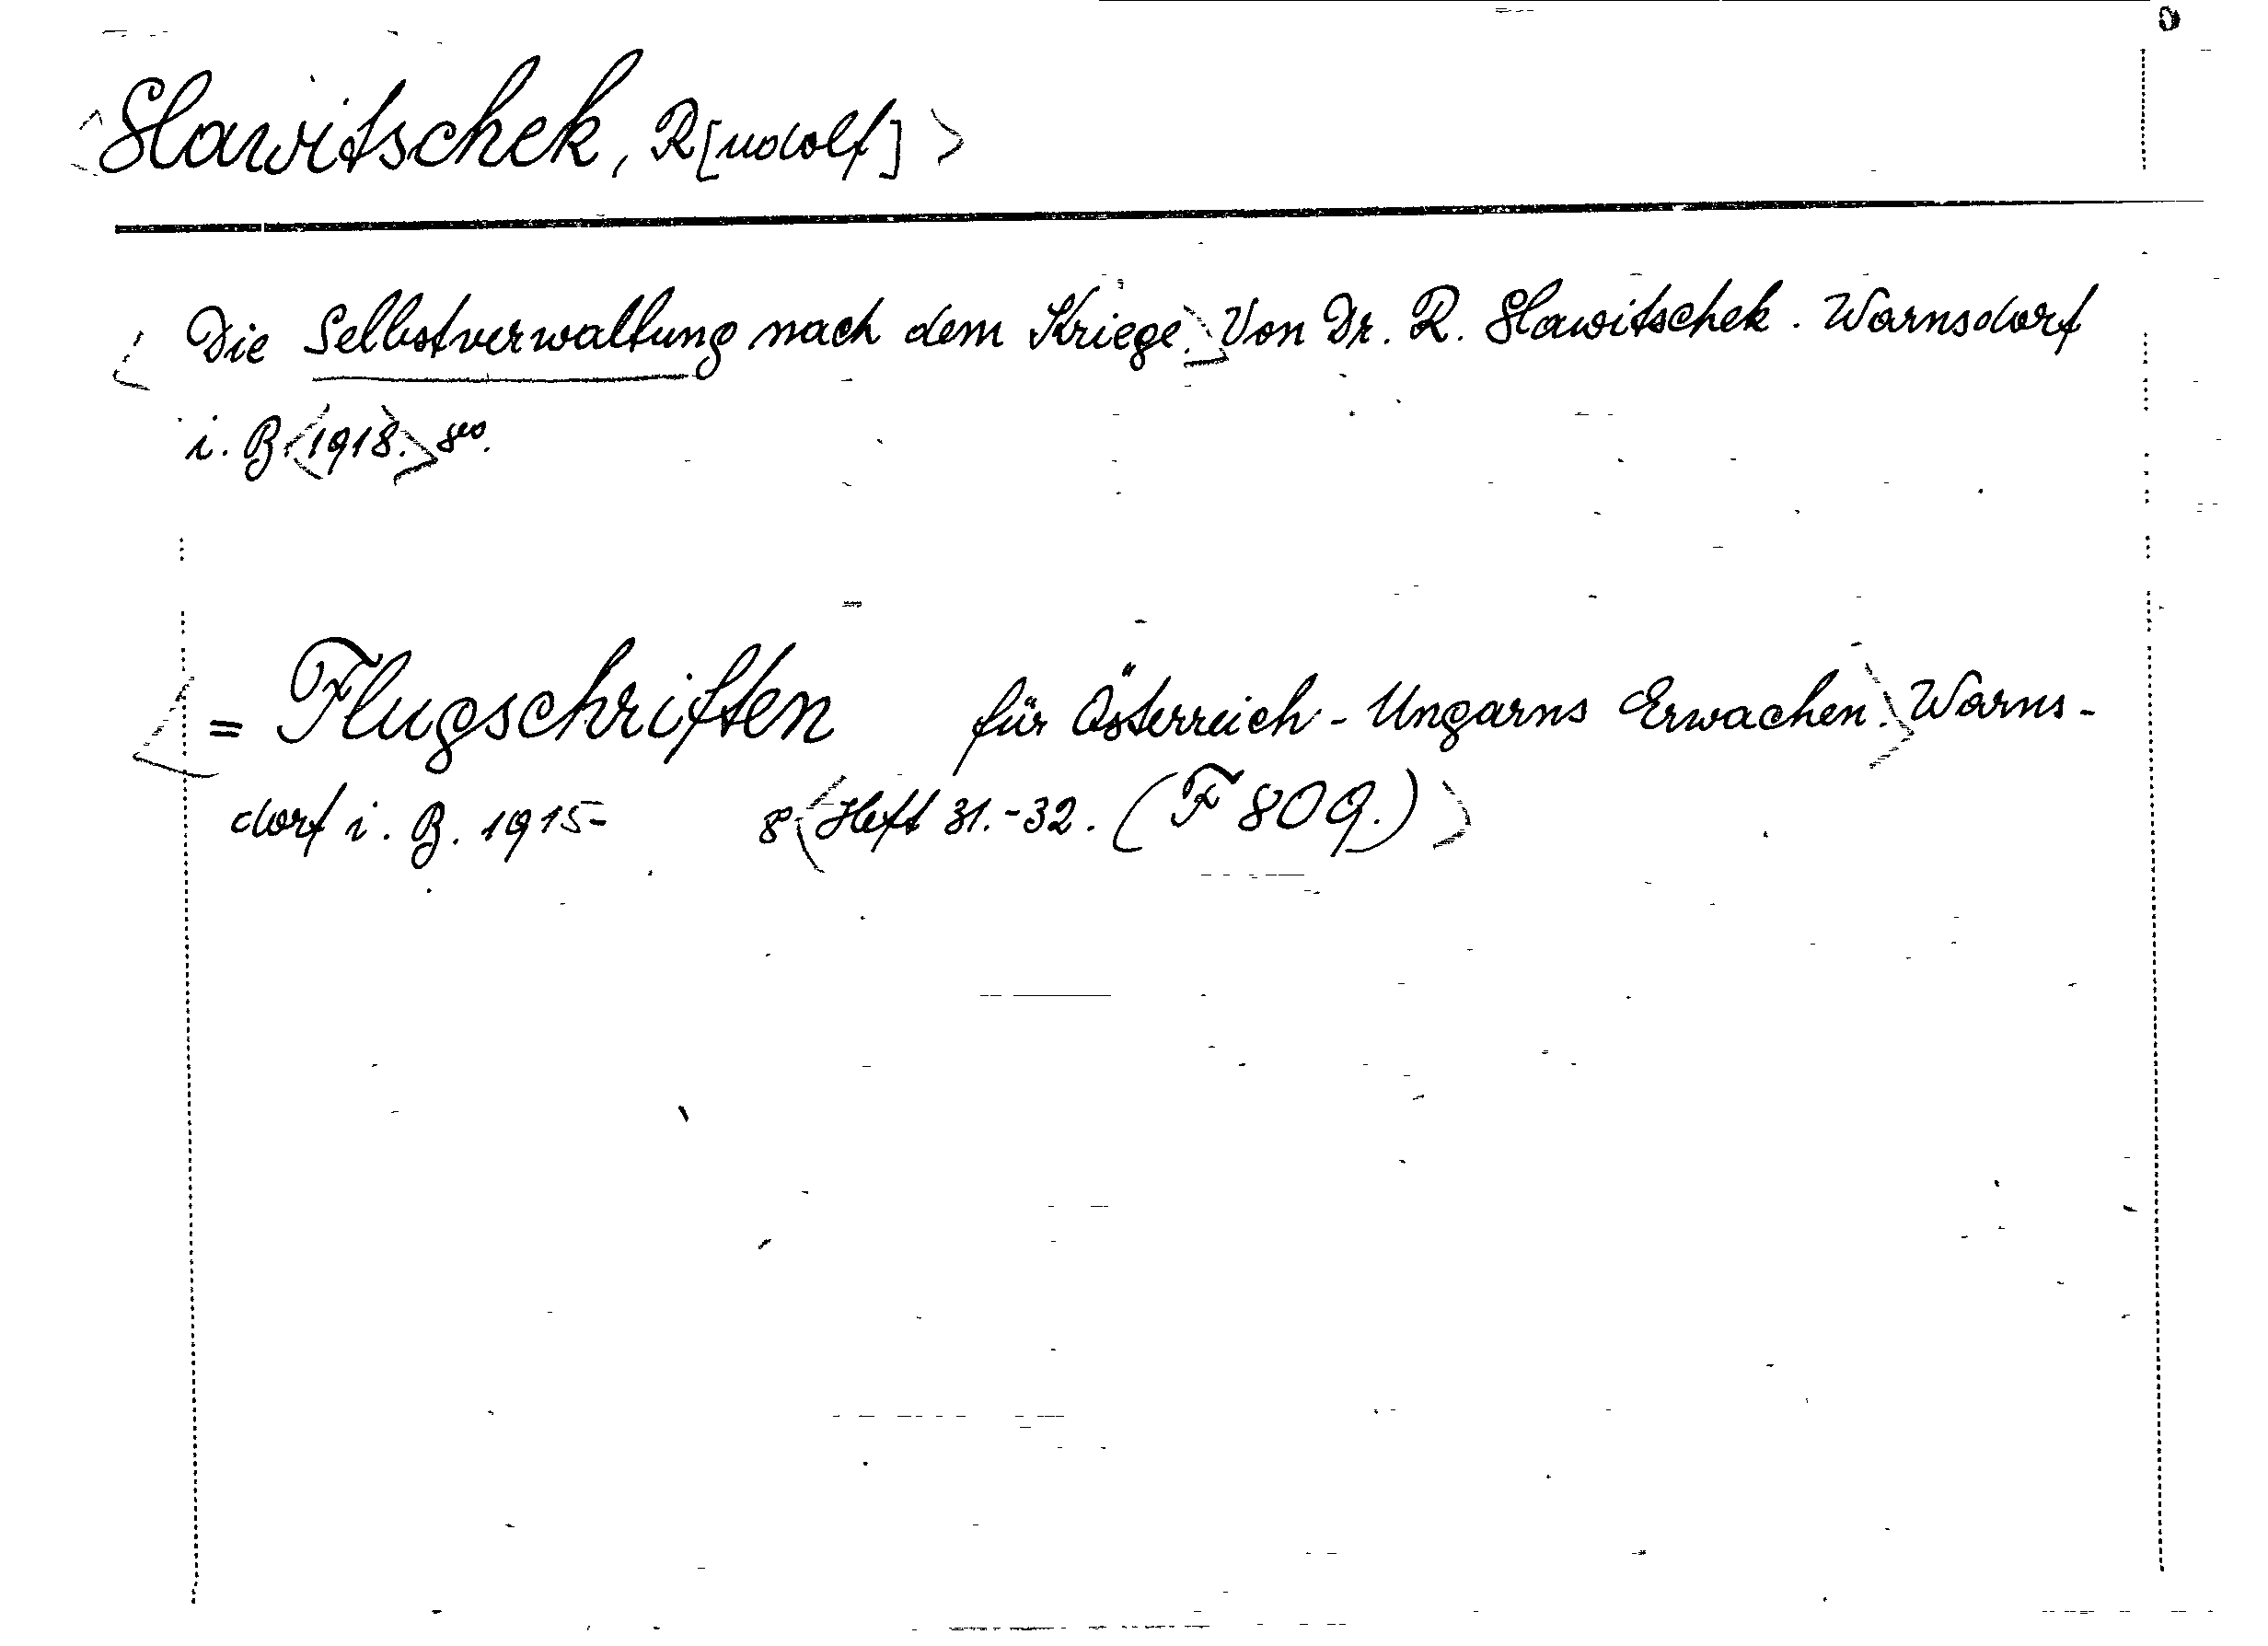 <Slawitschek, R[udolf]>
<Die Selbstverwaltung nach dem Kriege.> Von Dr. R. Slawitschek. Warnsdorf
i. B. <1918.> 8°.
<= Flugschriften für Österreich-Ungarns Erwachen.> Warns-
dorf i. B. 1915- 8 <Heft 31.-32. (F 809.)>